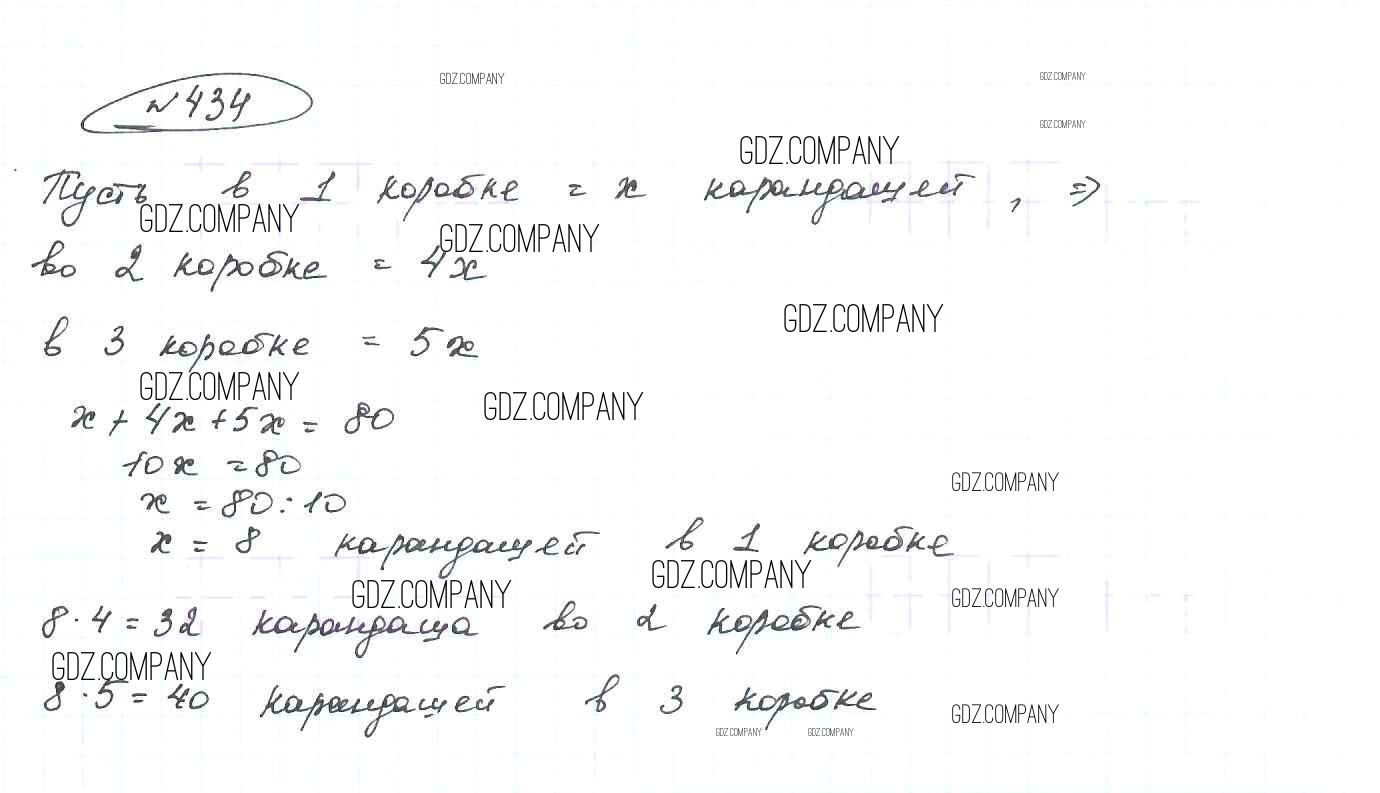 GDZ.COMPANY
GDZ.COMPANY
№ 434
GDZ.COMPANY
GDZ.COMPANY
Пусть в 1 коробке = x карандашей, =>
GDZ.COMPANY
GDZ.COMPANY
во 2 коробке = 4x
GDZ.COMPANY
в 3 коробке = 5x
GDZ.COMPANY
GDZ.COMPANY
x + 4x + 5x = 80
10x = 80
GDZ.COMPANY
x = 80:10
x = 8 карандашей в 1 коробке
GDZ.COMPANY
GDZ.COMPANY
GDZ.COMPANY
8·4 = 32 карандаша во 2 коробке
GDZ.COMPANY
8·5 = 40 карандашей в 3 коробке
GDZ.COMPANY
GDZ.COMPANY
GDZ.COMPANY